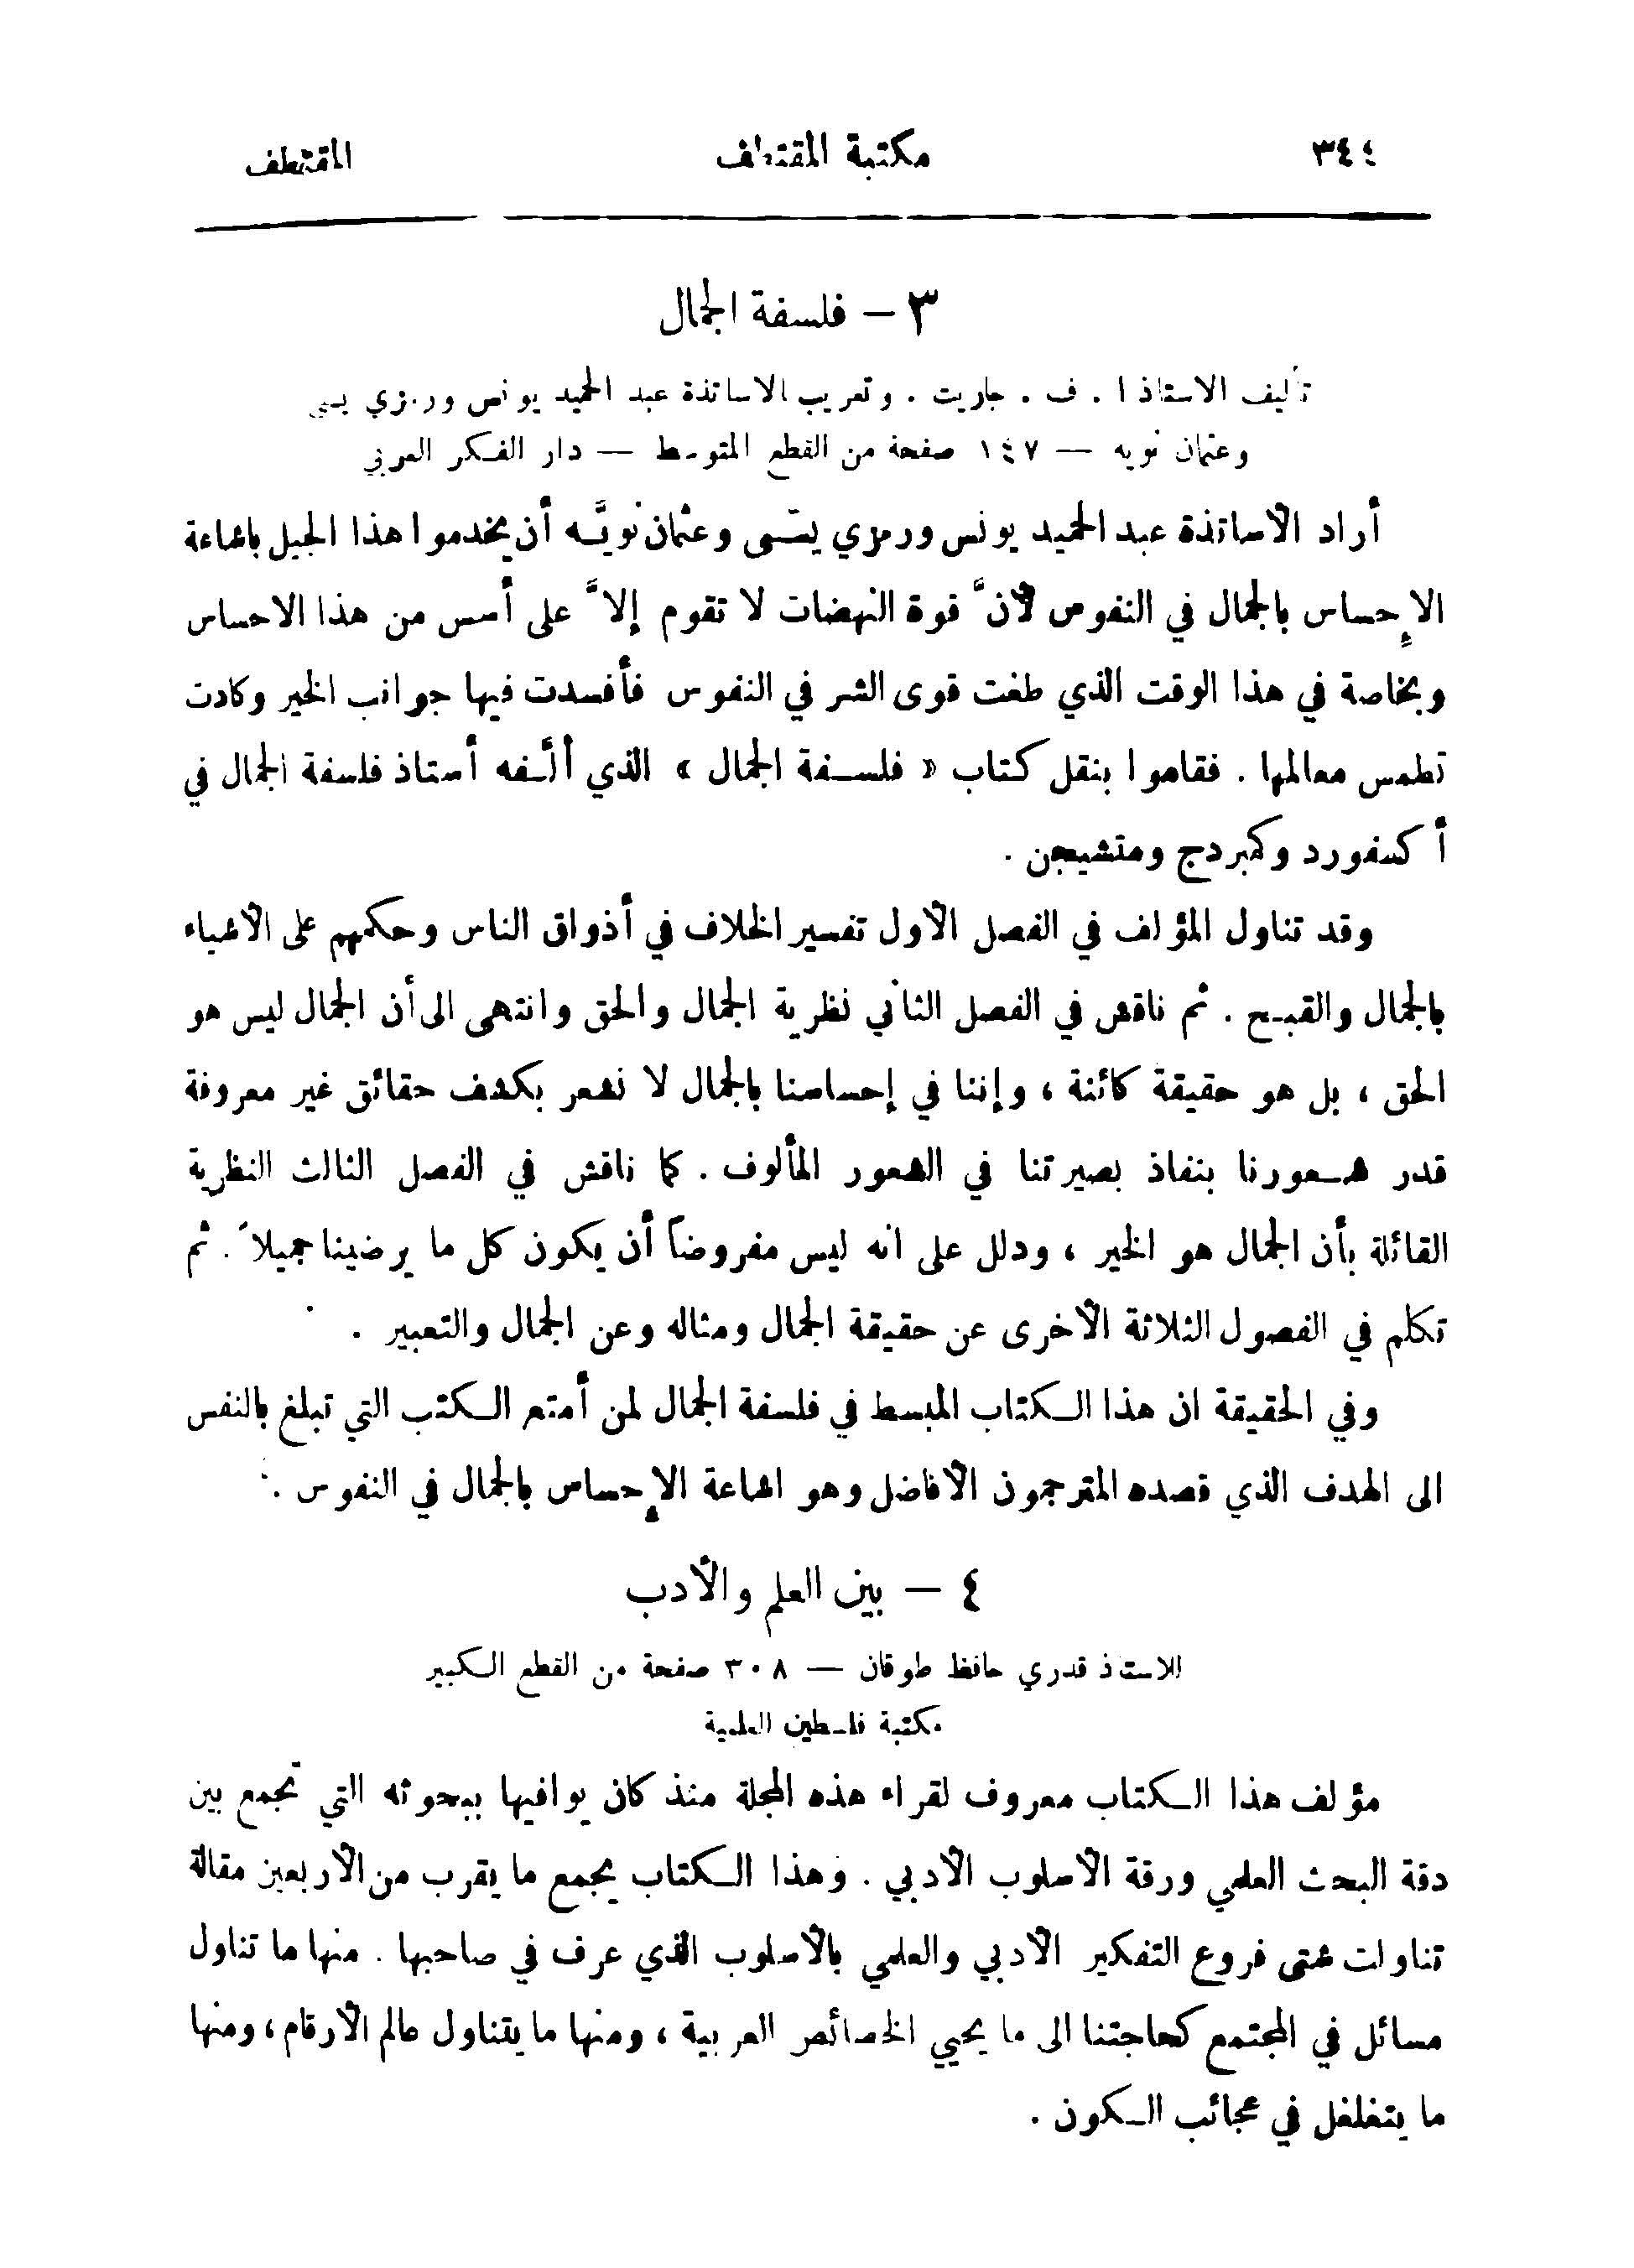 ٣٤٤ مكتبة المقتطف المقتطف
٣ – فلسفة الجمال
تأليف الاستاذ ا . ف . جاريت . وتعريب الاساتذة عبد الحميد يونس ورمزي يسى
وعثمان نويه — ١٤٧ صفحة من القطع المتوسط — دار الفكر العربي
أراد الأساتذة عبد الحميد يونس ورمزي يسَّى وعثمان نويَّه أن يخدموا هذا الجيل بإشاعة
الإحساس بالجمال في النفوس لأنَّ قوة النهضات لا تقوم إلاَّ على أسس من هذا الاحساس
وبخاصة في هذا الوقت الذي طغت قوى الشر في النفوس فأفسدت فيها جوانب الخير وكادت
تطمس معالمها . فقاموا بنقل كتاب « فلسفة الجمال » الذي ألَّفه أستاذ فلسفة الجمال في
أكسفورد وكمبردج ومتشيجن .
وقد تناول المؤلف في الفصل الأول تفسير الخلاف في أذواق الناس وحكمهم على الأشياء
بالجمال والقبح . ثم ناقش في الفصل الثاني نظرية الجمال والحق وانتهى الى أن الجمال ليس هو
الحق ، بل هو حقيقة كائنة ، وإننا في إحساسنا بالجمال لا نشعر بكشف حقائق غير معروفة
قدر شعورنا بنفاذ بصيرتنا في الشعور المألوف . كما ناقش في الفصل الثالث النظرية
القائلة بأن الجمال هو الخير ، ودلل على انه ليس مفروضاً أن يكون كل ما يرضينا جميلاً . ثم
تكلم في الفصول الثلاثة الأخرى عن حقيقة الجمال ومثاله وعن الجمال والتعبير .
وفي الحقيقة ان هذا الكتاب المبسط في فلسفة الجمال لمن أمتع الكتب التي تبلغ بالنفس
الى الهدف الذي قصده المترجمون الأفاضل وهو اشاعة الإحساس بالجمال في النفوس .
٤ — بين العلم والأدب
للاستاذ قدري حافظ طوقان — ٣٠٨ صفحة من القطع الكبير
مكتبة فلسطين العلمية
مؤلف هذا الكتاب معروف لقراء هذه المجلة منذ كان يوافيها ببحوثه التي تجمع بين
دقة البحث العلمي ورقة الأسلوب الأدبي . وهذا الكتاب يجمع ما يقرب من الأربعين مقالة
تناولت شتى فروع التفكير الأدبي والعلمي بالأسلوب الذي عرف في صاحبها . منها ما تناول
مسائل في المجتمع كحاجتنا الى ما يحيي الخصائص العربية ، ومنها ما يتناول عالم الأرقام ، ومنها
ما يتغلغل في عجائب الكون .